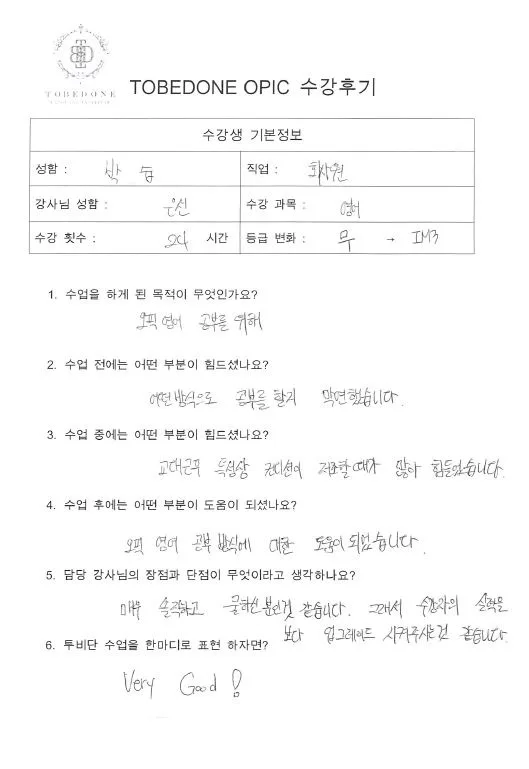 TOBEDONE
TOBEDONE OPIC 수강후기
수강생 기본정보
성함 : 박 직업 : 회사원
강사님 성함 : 은선 수강 과목 : 영어
수강 횟수 : 24 시간 등급 변화 : 무 → IM3
1. 수업을 하게 된 목적이 무엇인가요?
오픽 영어 공부를 위해
2. 수업 전에는 어떤 부분이 힘드셨나요?
어떤 방식으로 공부를 할지 막연했습니다.
3. 수업 중에는 어떤 부분이 힘드셨나요?
교대근무 특성상 컨디션이 저조할 때가 많아 힘들었습니다.
4. 수업 후에는 어떤 부분이 도움이 되셨나요?
오픽 영어 공부 방식에 대한 도움이 되었습니다.
5. 담당 강사님의 장점과 단점이 무엇이라고 생각하나요?
매우 솔직하고 쿨하신 분인것 같습니다. 그래서 수강자의 실력을
보다 업그레이드 시켜주시는것 같습니다.
6. 투비단 수업을 한마디로 표현 하자면?
Very Good!